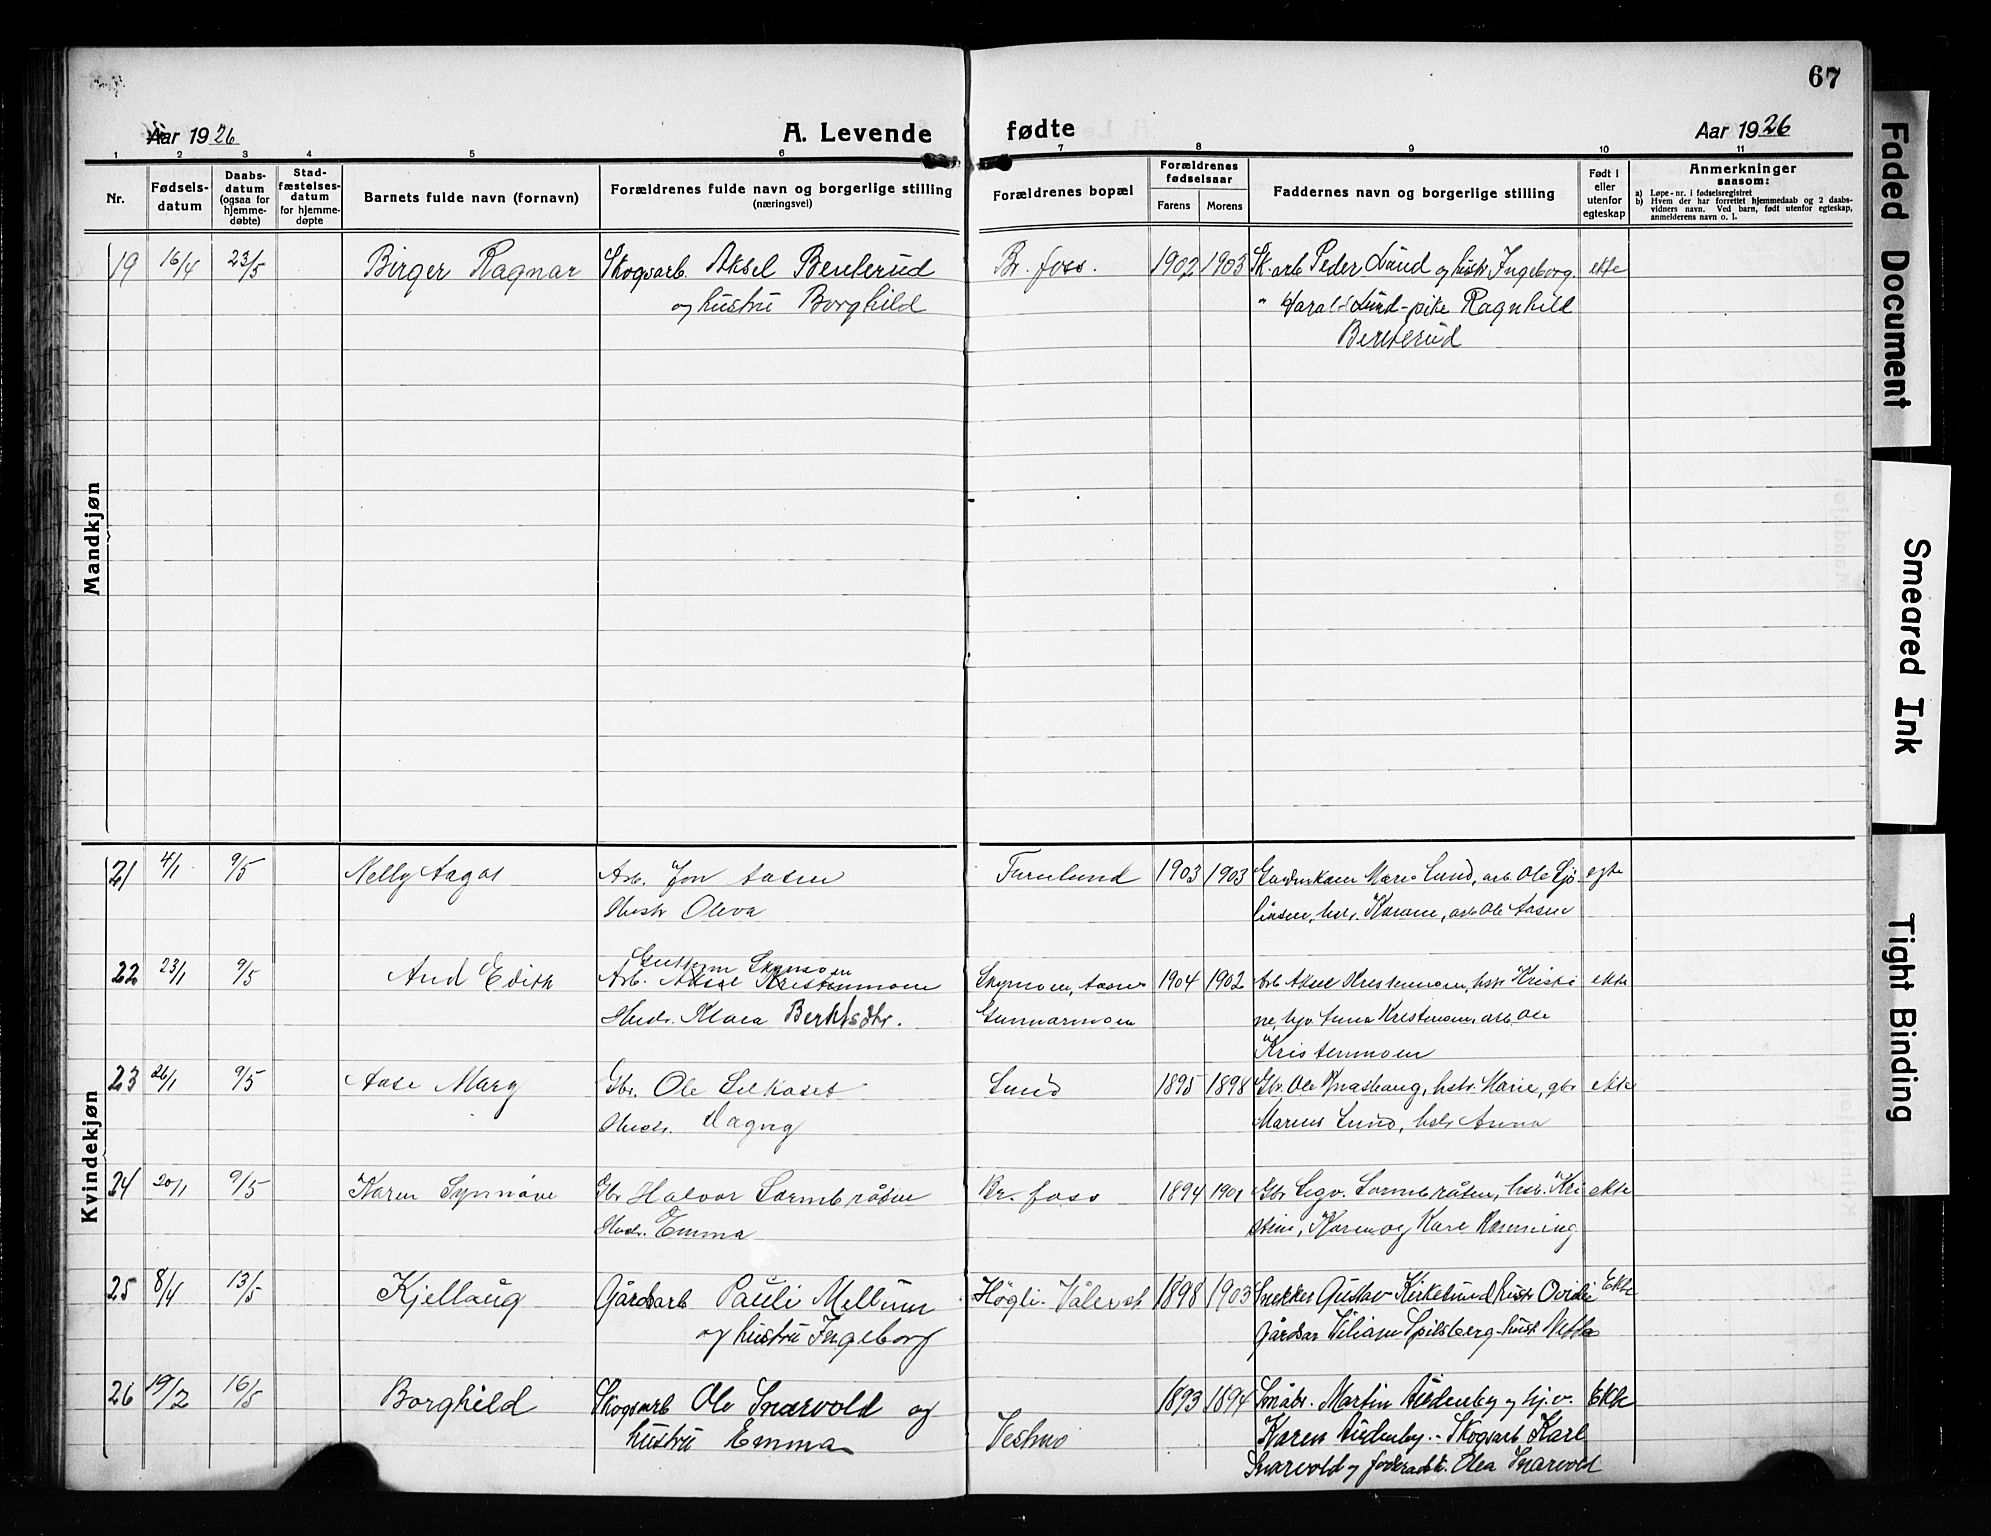 67
Aar 1926 A. Levende fødte Aar 1926
1 2 3 4 5 6 7 8 9 10 11
Nr.
Fødsels-
datum
Daabs-
datum
(ogsaa for
hjemme-
døbte)
Stad-
fæstelses-
datum
for hjemme-
døpte
Barnets fulde navn (fornavn)
Forældrenes fulde navn og borgerlige stilling
(næringsvei)
Forældrenes bopæl
Forældrenes
fødselsaar
Farens Morens
Faddernes navn og borgerlige stilling
Født i
eller
utenfor
egteskap
Anmerkninger
saasom:
a) Løpe-nr. i fødselsregistret
b) Hvem der har forrettet hjemmedaab og 2 daabs-
vidners navn. Ved barn, født utenfor egteskap,
anmelderens navn o. l.
Mandkjøn
19 16/4 23/5 Birger Ragnar Skogsarb. Aksel Benterud Br. foss. 1902 1903 Sk. arb Peder Lund og hustr Ingeborg. ekte
og hustru Borghild " Harald Lund - pike Ragnhild
Benterud
Kvindekjøn
21 4/1 9/5 Nelly Aagot Arb. Jon Aasen Furulund 1903 1903 Maria Lund, arb. Ole egte
Hustr Oleva hstr. arb Ole Aasen
22 23/1 9/5 Aud Edith Arb. Aksel Kristenmoen 1904 1902 Arb Aksel Kristenmoen, hstr Kristi ekte
Guttorm Skymoen
Hustr. Klara Berntsdtr. Gunnarmoen ne, Kristenmoen, arb. Ole
Kristenmoen
23 26/1 9/5 Aase Mary Gbr. Ole Silkoset Lund 1895 1898 Gbr. Ole hstr. Marie, gbr ekte
Hustr. Dagny Marius Lund, hstr Anna
24 20/1 9/5 Karen Synnøve Gbr Halvor Sormbråten Br. foss 1894 1901 Gbr Sigv. Sormbråten, hstr. Kri ekte
Hustr. Emma stine, Karen og Kare
25 8/4 13/5 Kjellaug Gårdsarb Pauli Mellum Høgli. Våler st 1898 1903 Snekker Gustav Kirkelund hustr Ekte
og hustru Ingeborg Gårdsar Viliam Spilsberg - hust
26 19/2 16/5 Borghild Skogsarb Ole Snarvold og 1893 1894 Småbr. Martin Audenby og hj.v. Ekte
hustru Emma Vestmo Karen Audenby. - Skogsarb Karl
Snarvold og Olea Snarvold
Faded Document
Smeared Ink
Tight Binding